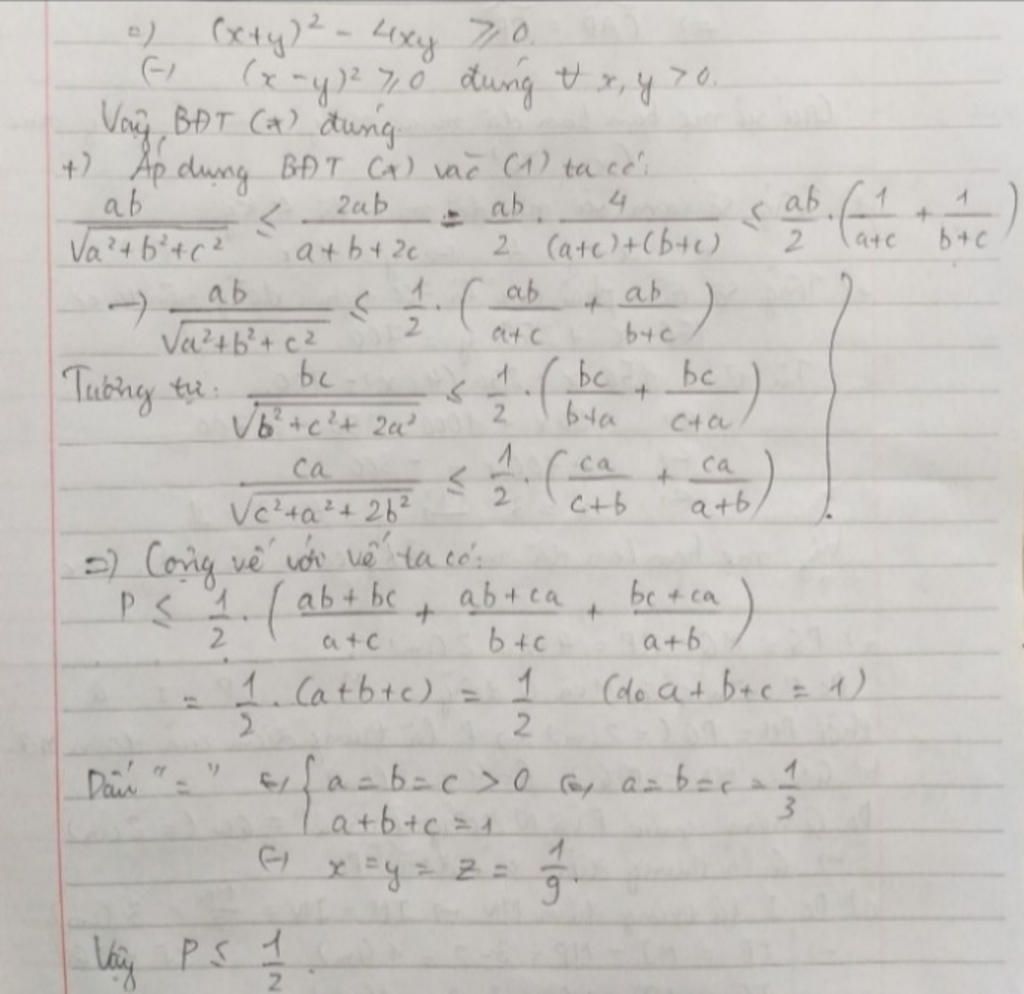 =) (x+y)² - 4xy ⩾ 0.
(-) (x-y)² ⩾ 0 đúng ∀ x, y > 0.
Vậy BĐT (*) đúng.
+) Áp dụng BĐT (*) vào (1) ta có:
ab/√(a²+b²+c²) ≤ 2ab/(a+b+2c) = ab/2 · 4/((a+c)+(b+c)) ≤ ab/2 · (1/(a+c) + 1/(b+c))
→ ab/√(a²+b²+c²) ≤ 1/2 · (ab/(a+c) + ab/(b+c))
Tương tự: bc/√(b²+c²+2a²) ≤ 1/2 · (bc/(b+a) + bc/(c+a))
ca/√(c²+a²+2b²) ≤ 1/2 · (ca/(c+b) + ca/(a+b))
=) Cộng vế với vế ta có:
P ≤ 1/2 · ((ab+bc)/(a+c) + (ab+ca)/(b+c) + (bc+ca)/(a+b))
= 1/2 · (a+b+c) = 1/2 (do a+b+c = 1)
Dấu "=" (=) { a=b=c > 0 (=) a=b=c = 1/3
a+b+c = 1
(-) x=y=z = 1/9.
Vậy P ≤ 1/2.